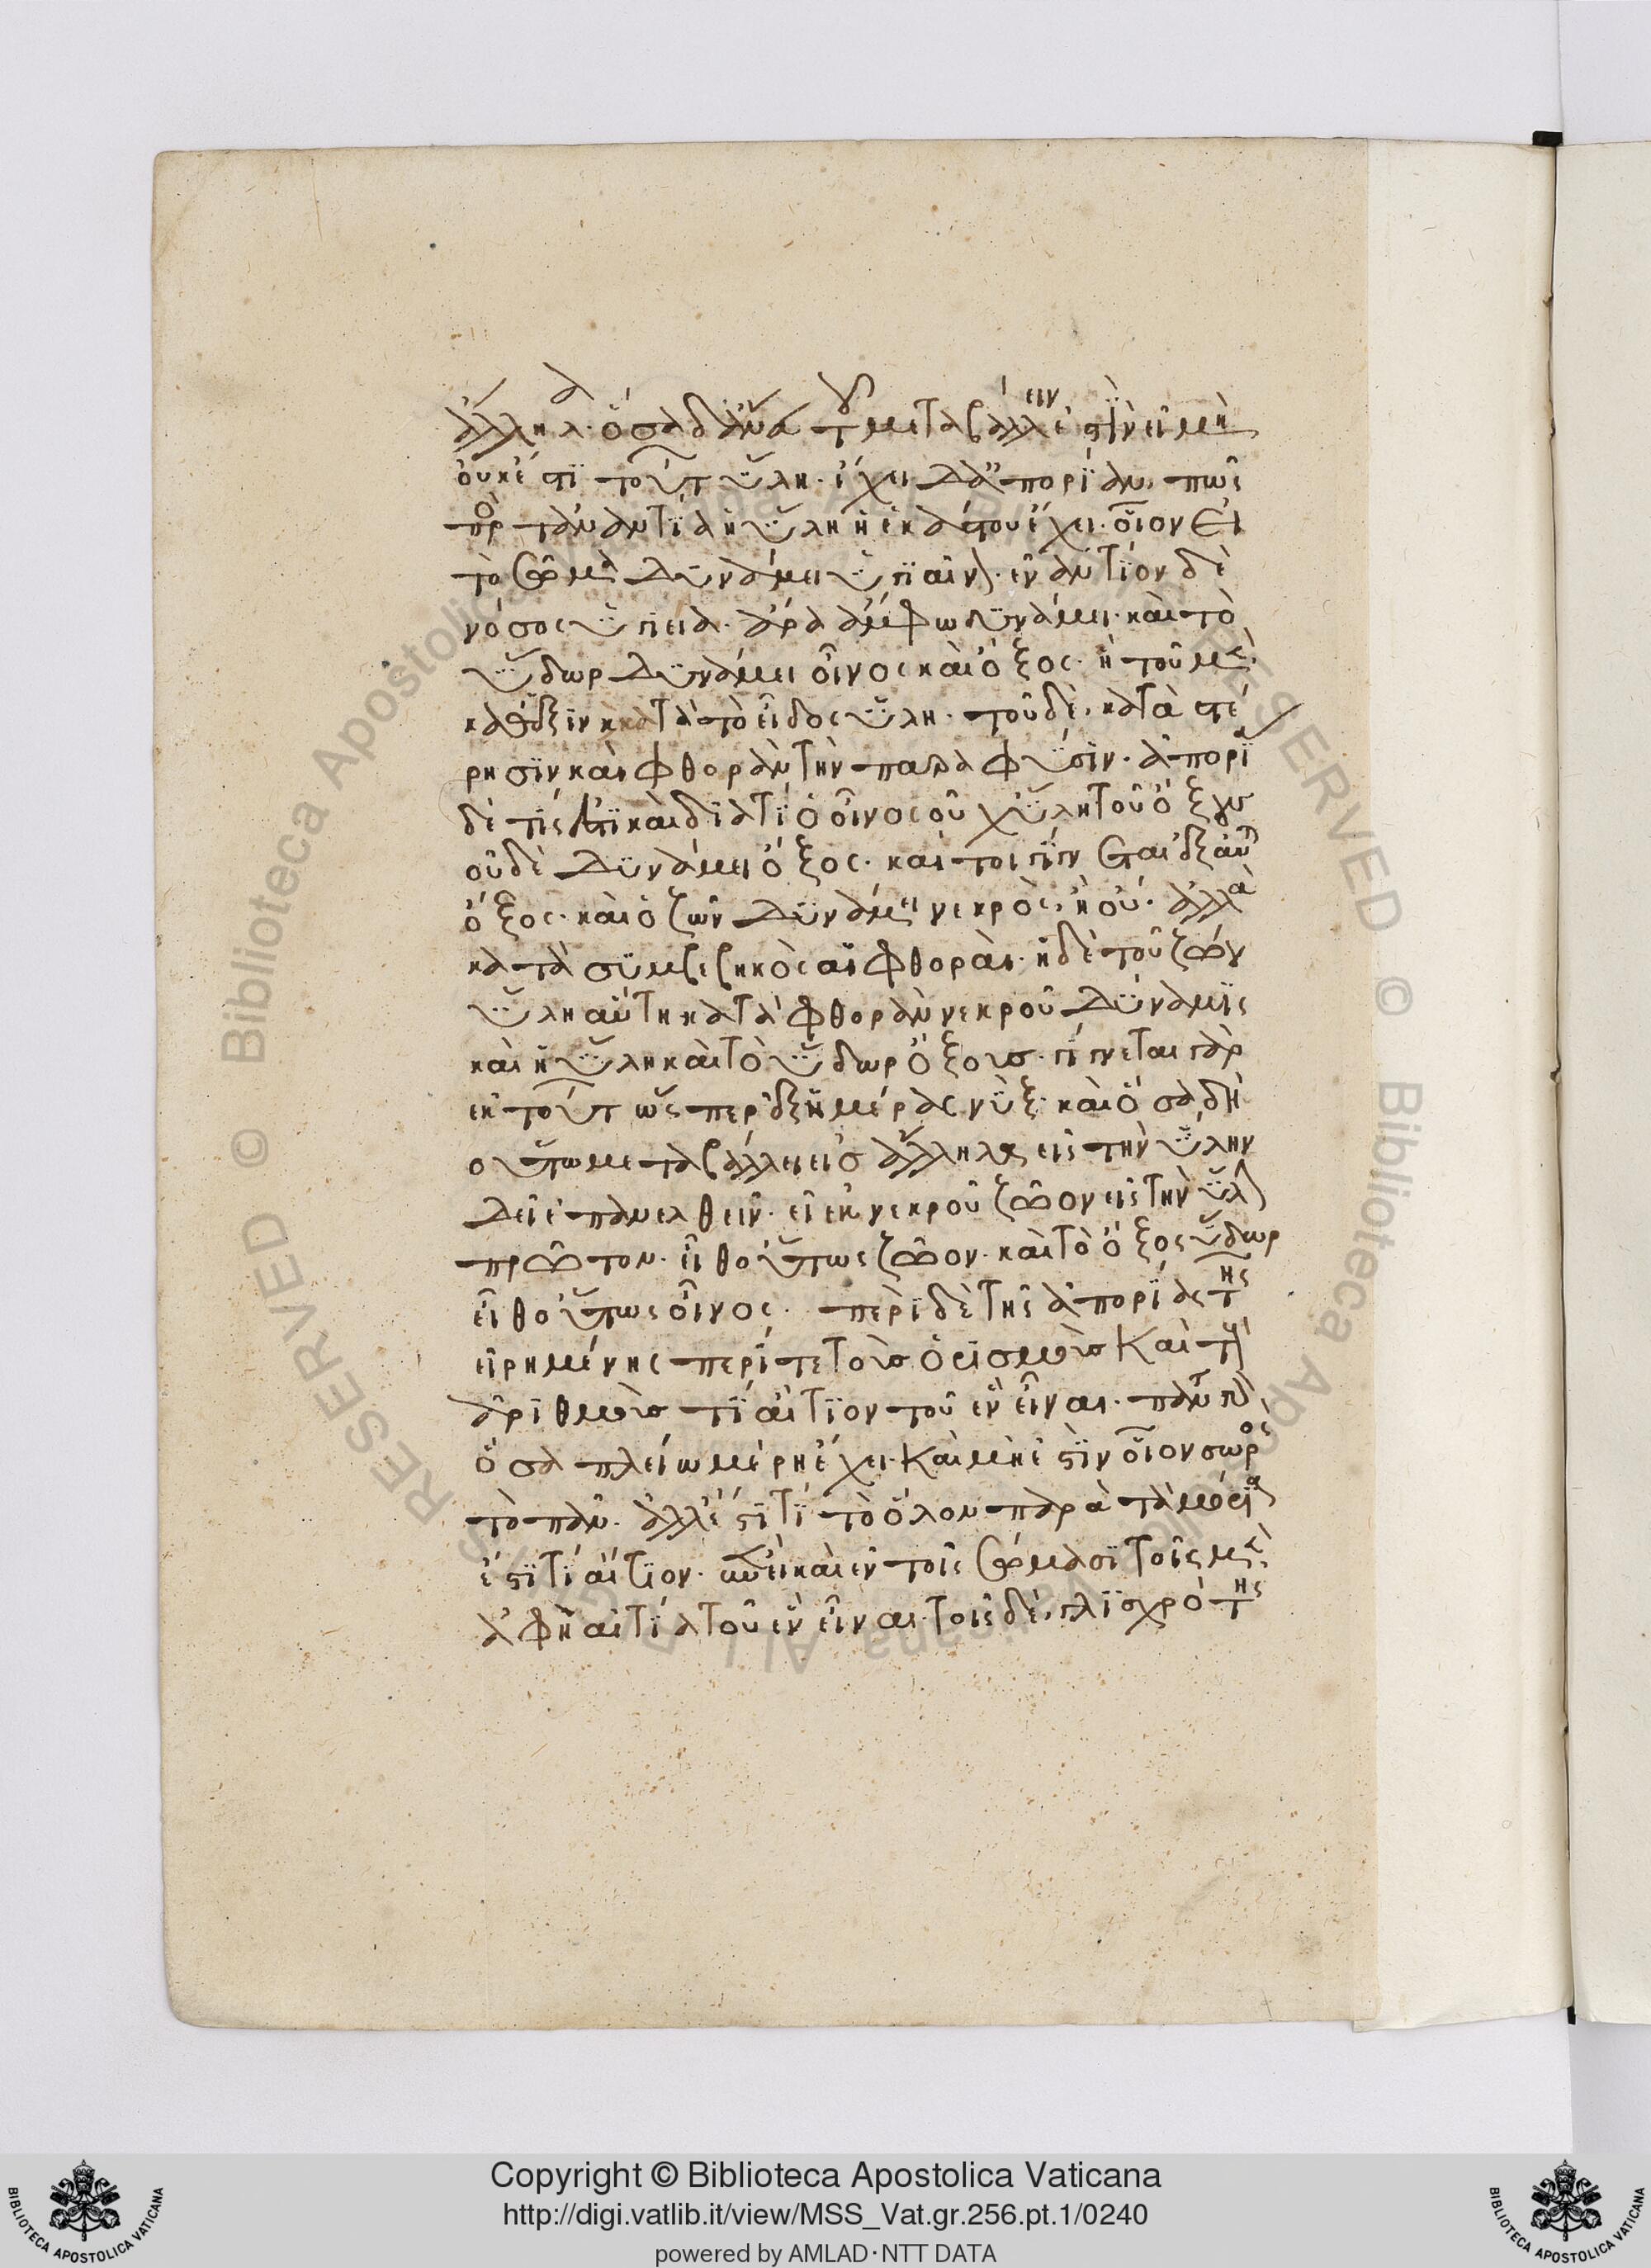 ἄλληλα· ὅσα δ' ἄνευ τοῦ μεταβάλλειν ἐστὶν εἰ μὴ
οὐκ ἔστι τούτων ὕλη· ἔχει δ' ἀπορίαν, πῶς
πρὸς τἀναντία ἡ ὕλη ἡ ἑκάστου ἔχει· οἷον εἰ
τὸ σῶμα δυνάμει ὑγιεινόν· ἐναντίον δὲ
νόσος ὑγιεία· ἆρα ἄμφω δυνάμει· καὶ τὸ
ὕδωρ δυνάμει οἶνος καὶ ὄξος· ἢ τοῦ μὲν
καθ' ἕξιν καὶ κατὰ τὸ εἶδος ὕλη· τοῦ δὲ, κατὰ στέ
ρησιν καὶ φθορὰν τὴν παρὰ φύσιν· ἀπορία
δέ τίς ἐστι καὶ διὰ τί ὁ οἶνος οὐχ ὕλη τοῦ ὄξους
οὐδὲ δυνάμει ὄξος· καίτοι γίγνεται ἐξ αὐτοῦ
ὄξος· καὶ ὁ ζῶν δυνάμει νεκρός, ἢ οὔ· ἀλλὰ
κατὰ συμβεβηκὸς αἱ φθοραί· ἡ δὲ τοῦ ζώου
ὕλη αὐτὴ κατὰ φθορὰν νεκροῦ δύναμις
καὶ ἡ ὕλη καὶ τὸ ὕδωρ ὄξους· γίγνεται γὰρ
ἐκ τούτων ὥσπερ ἐξ ἡμέρας νύξ· καὶ ὅσα δὴ
οὕτω μεταβάλλει εἰς ἄλληλα, εἰς τὴν ὕλην
δεῖ ἐπανελθεῖν· εἰ ἐκ νεκροῦ ζῶον εἰς τὴν ὕλην
πρῶτον· εἶθ' οὕτως ζῶον· καὶ τὸ ὄξος εἰς ὕδωρ
εἶθ' οὕτως οἶνος· περὶ δὲ τῆς ἀπορίας τῆς
εἰρημένης περί τε τοὺς ὁρισμοὺς καὶ τοὺς
ἀριθμοὺς τί αἴτιον τοῦ ἓν εἶναι· πάντων γὰρ
ὅσα πλείω μέρη ἔχει· καὶ μή ἐστιν οἷον σωρὸς
τὸ πᾶν· ἀλλ' ἔστι τι τὸ ὅλον παρὰ τὰ μόρια
ἔστι τι αἴτιον· ἐπεὶ καὶ ἐν τοῖς σώμασι τοῖς μὲν
ἁφὴ αἰτία τοῦ ἓν εἶναι· τοῖς δὲ, γλισχρότης